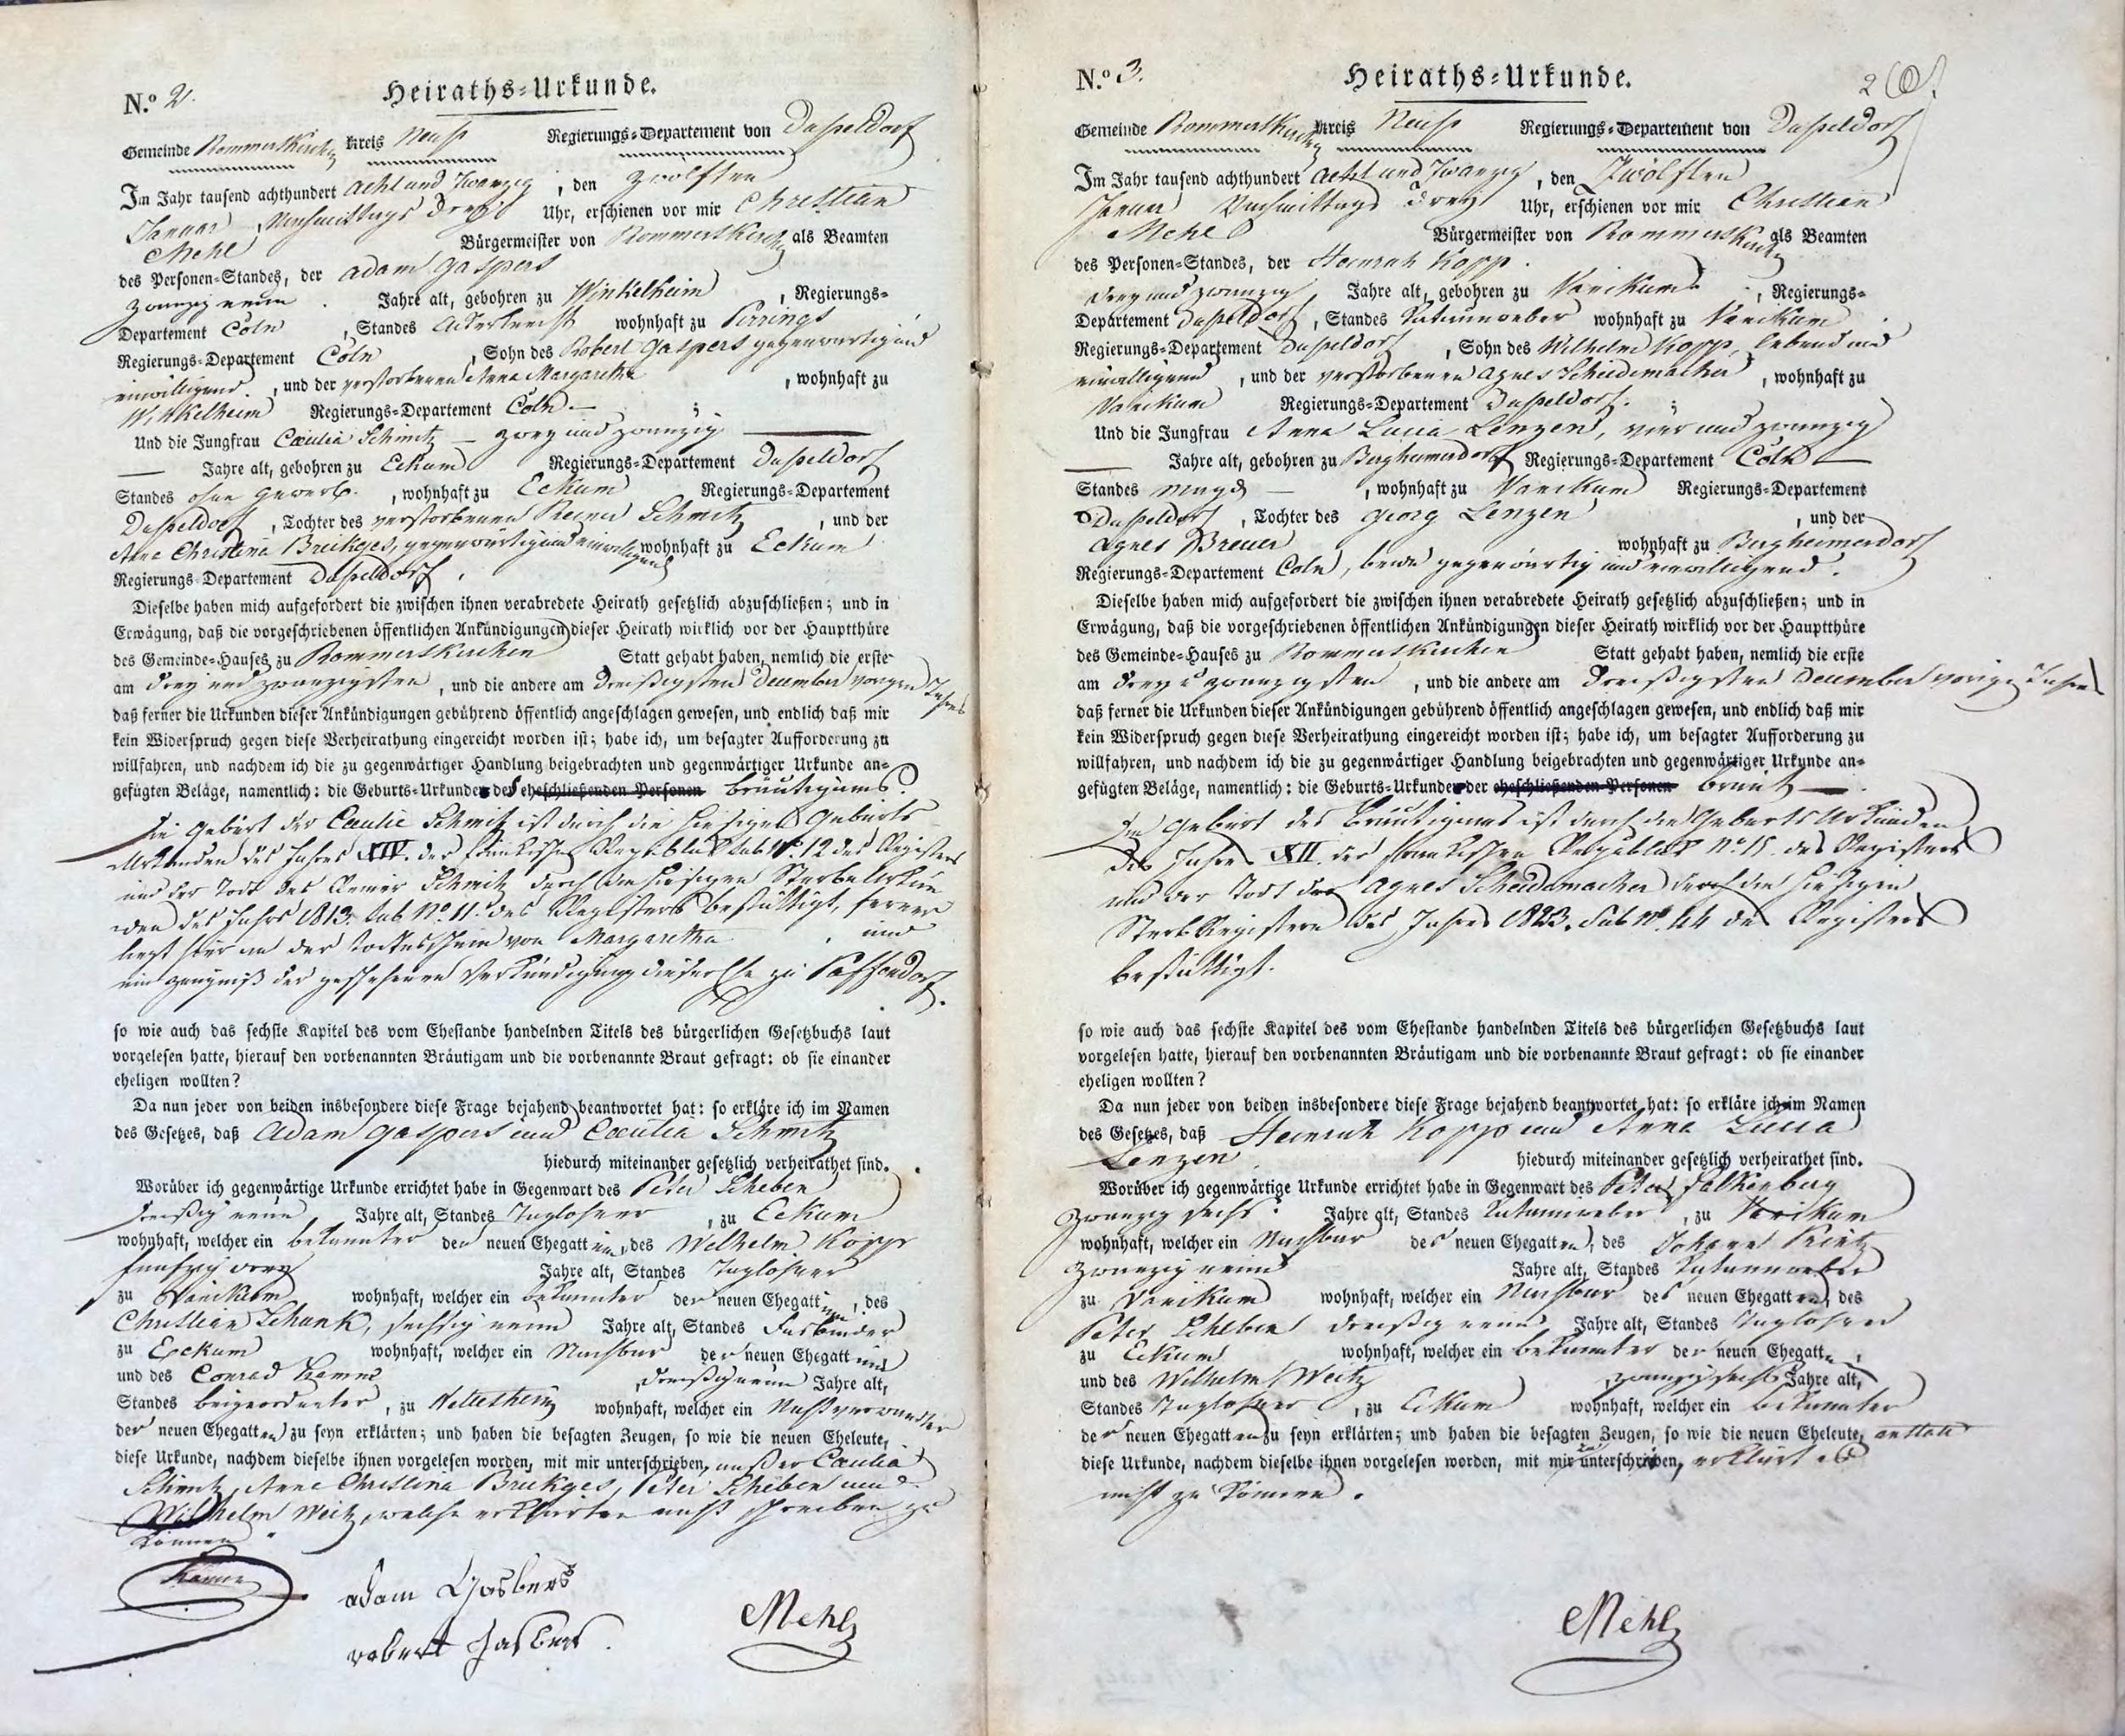 N.º 2.
Heiraths-Urkunde.
Gemeinde Rommerskirchen Kreis Neuss Regierungs-Departement von Dusseldorf
Im Jahr tausend achthundert acht und zwanzig, den zwölften
Januar Nachmittags drey Uhr, erschienen vor mir Christian
Mehl Bürgermeister von Rommerskirchen als Beamten
des Personen-Standes, der Adam Gaspers
zwanzig neun Jahre alt, gebohren zu Winkelheim, Regierungs-
Departement Cöln, Standes Ackerknecht wohnhaft zu Perrings
Regierungs-Departement Cöln, Sohn des Robert Gaspers gegenwärtig und
einwilligend, und der verstorbenen Anna Margaretha, wohnhaft zu
Winkelheim Regierungs-Departement Cöln ;
Und die Jungfrau Cæcilia Schmitz zwey und zwanzig
Jahre alt, gebohren zu Eckum Regierungs-Departement Dusseldorf
Standes ohne Gewerb, wohnhaft zu Eckum Regierungs-Departement
Dusseldorf, Tochter des verstorbenen Reiner Schmitz, und der
Anna Christina Breikges, gegenwärtig und einwilligend wohnhaft zu Eckum
Regierungs-Departement Dusseldorf.
Dieselbe haben mich aufgefordert die zwischen ihnen verabredete Heirath gesetzlich abzuschließen; und in
Erwägung, daß die vorgeschriebenen öffentlichen Ankündigungen dieser Heirath wirklich vor der Hauptthüre
des Gemeinde-Hauses zu Rommerskirchen Statt gehabt haben, nemlich die erste
am drey und zwanzigsten, und die andere am dreißigsten December vorigen Jahres
daß ferner die Urkunden dieser Ankündigungen gebührend öffentlich angeschlagen gewesen, und endlich daß mir
kein Widerspruch gegen diese Verheirathung eingereicht worden ist; habe ich, um besagter Aufforderung zu
willfahren, und nachdem ich die zu gegenwärtiger Handlung beigebrachten und gegenwärtiger Urkunde an-
gefügten Beläge, namentlich: die Geburts-Urkunde des eheschließenden Personen Bräutigams.
Die Geburt der Cæcilie Schmitz ist durch die hiesigen Geburts-
Urkunden des Jahres XIV. der fränkischen Republik sub Nº. 12 des Registers
und der Tod des Reiner Schmitz durch die hiesigen Sterbeurkun
den des Jahrs 1813. sub Nº. 11. des Registers bestättigt, ferner
liegt hier an der Todtesschein von Margaretha und
ein Zeugniß der geschehenen Verkündigung dieser Ehe zu Paffendorf.
so wie auch das sechste Kapitel des vom Ehestande handelnden Titels des bürgerlichen Gesetzbuchs laut
vorgelesen hatte, hierauf den vorbenannten Bräutigam und die vorbenannte Braut gefragt: ob sie einander
eheligen wollten?
Da nun jeder von beiden insbesondere diese Frage bejahend beantwortet hat: so erkläre ich im Namen
des Gesetzes, daß Adam Gaspers und Cæcilia Schmitz
hiedurch miteinander gesetzlich verheirathet sind.
Worüber ich gegenwärtige Urkunde errichtet habe in Gegenwart des Peter Scheben
dreißig neun Jahre alt, Standes Taglöhner, zu Eckum
wohnhaft, welcher ein bekannter der neuen Ehegattin, des Wilhelm Kopp
funfzig drey Jahre alt, Standes Taglöhner
zu Vanikum wohnhaft, welcher ein bekannter der neuen Ehegattin, des
Christian Schunk, sechsig neun Jahre alt, Standes Fasbinder
zu Eckum wohnhaft, welcher ein Nachbar der neuen Ehegattin
und des Conrad Hamm, dreißig neun Jahre alt,
Standes beigeordneter, zu Nettesheim wohnhaft, welcher ein Nichtverwandter
der neuen Ehegatten zu seyn erklärten; und haben die besagten Zeugen, so wie die neuen Eheleute,
diese Urkunde, nachdem dieselbe ihnen vorgelesen worden, mit mir unterschrieben, außer Cæcilia
Schmitz, Anna Christina Breikges, Peter Scheben und
Wilhelm Weitz, welche erklärten nicht schreiben zu
können.
adam Gasbers
robert Gasbers.
Mehl
N.º 3.
Heiraths-Urkunde.
2
Gemeinde Rommerskirchen Kreis Neuss Regierungs-Departement von Dusseldorf
Im Jahr tausend achthundert acht und zwanzig, den zwölften
Januar Nachmittags drey Uhr, erschienen vor mir Christian
Mehl Bürgermeister von Rommerskirchen als Beamten
des Personen-Standes, der Heinrich Kopp.
drey und zwanzig Jahre alt, gebohren zu Vanikum, Regierungs-
Departement Dusseldorf, Standes Katunweber wohnhaft zu Vanikum
Regierungs-Departement Dusseldorf, Sohn des Wilhelm Kopp, lebend und
einwilligend, und der verstorbenen Agnes Scheidemacher, wohnhaft zu
Vanikum Regierungs-Departement Dusseldorf. ;
Und die Jungfrau Anna Lucia Lenzen, vier und zwanzig
Jahre alt, gebohren zu Bergheimerdorf Regierungs-Departement Cöln
Standes Magd, wohnhaft zu Vanikum Regierungs-Departement
Dusseldorf, Tochter des Georg Lenzen, und der
Agnes Breuer wohnhaft zu Bergheimerdorf
Regierungs-Departement Cöln, beide gegenwärtig und einwilligend.
Dieselbe haben mich aufgefordert die zwischen ihnen verabredete Heirath gesetzlich abzuschließen; und in
Erwägung, daß die vorgeschriebenen öffentlichen Ankündigungen dieser Heirath wirklich vor der Hauptthüre
des Gemeinde-Hauses zu Rommerskirchen Statt gehabt haben, nemlich die erste
am drey u zwanzigsten, und die andere am dreißigsten December vorigen Jahres
daß ferner die Urkunden dieser Ankündigungen gebührend öffentlich angeschlagen gewesen, und endlich daß mir
kein Widerspruch gegen diese Verheirathung eingereicht worden ist; habe ich, um besagter Aufforderung zu
willfahren, und nachdem ich die zu gegenwärtiger Handlung beigebrachten und gegenwärtiger Urkunde an-
gefügten Beläge, namentlich: die Geburts-Urkunde der eheschließenden Personen braut
Die Geburt des Bräutigams ist durch die Geburts Urkunden
des Jahres XII. der fränkischen Republik Nº 15. des Registers
und der Tod der Agnes Scheidemacher durch die hiesigen
Sterb Registern des Jahres 1823. sub Nº. 44 des Registers
bestättigt.
so wie auch das sechste Kapitel des vom Ehestande handelnden Titels des bürgerlichen Gesetzbuchs laut
vorgelesen hatte, hierauf den vorbenannten Bräutigam und die vorbenannte Braut gefragt: ob sie einander
eheligen wollten?
Da nun jeder von beiden insbesondere diese Frage bejahend beantwortet hat: so erkläre ich im Namen
des Gesetzes, daß Heinrich Kopp und Anna Lucia
Lenzen hiedurch miteinander gesetzlich verheirathet sind.
Worüber ich gegenwärtige Urkunde errichtet habe in Gegenwart des Peter Falkenberg
zwanzig sechs Jahre alt, Standes Katunweber, zu Vanikum
wohnhaft, welcher ein Nachbar des neuen Ehegatten, des Johann
zwanzig neun Jahre alt, Standes Katunweber
zu Vanikum wohnhaft, welcher ein Nachbar des neuen Ehegatten, des
Peter Scheben dreißig neun Jahre alt, Standes Taglöhner
zu Eckum wohnhaft, welcher ein bekannter der neuen Ehegatten,
und des Wilhelm Weitz, zwanzig sechs Jahre alt,
Standes Taglöhner, zu Eckum wohnhaft, welcher ein bekannter
der neuen Ehegatten zu seyn erklärten; und haben die besagten Zeugen, so wie die neuen Eheleute, anstatt
diese Urkunde, nachdem dieselbe ihnen vorgelesen worden, mit mir zu unterschreiben, erklärt es
nicht zu können.
Mehl